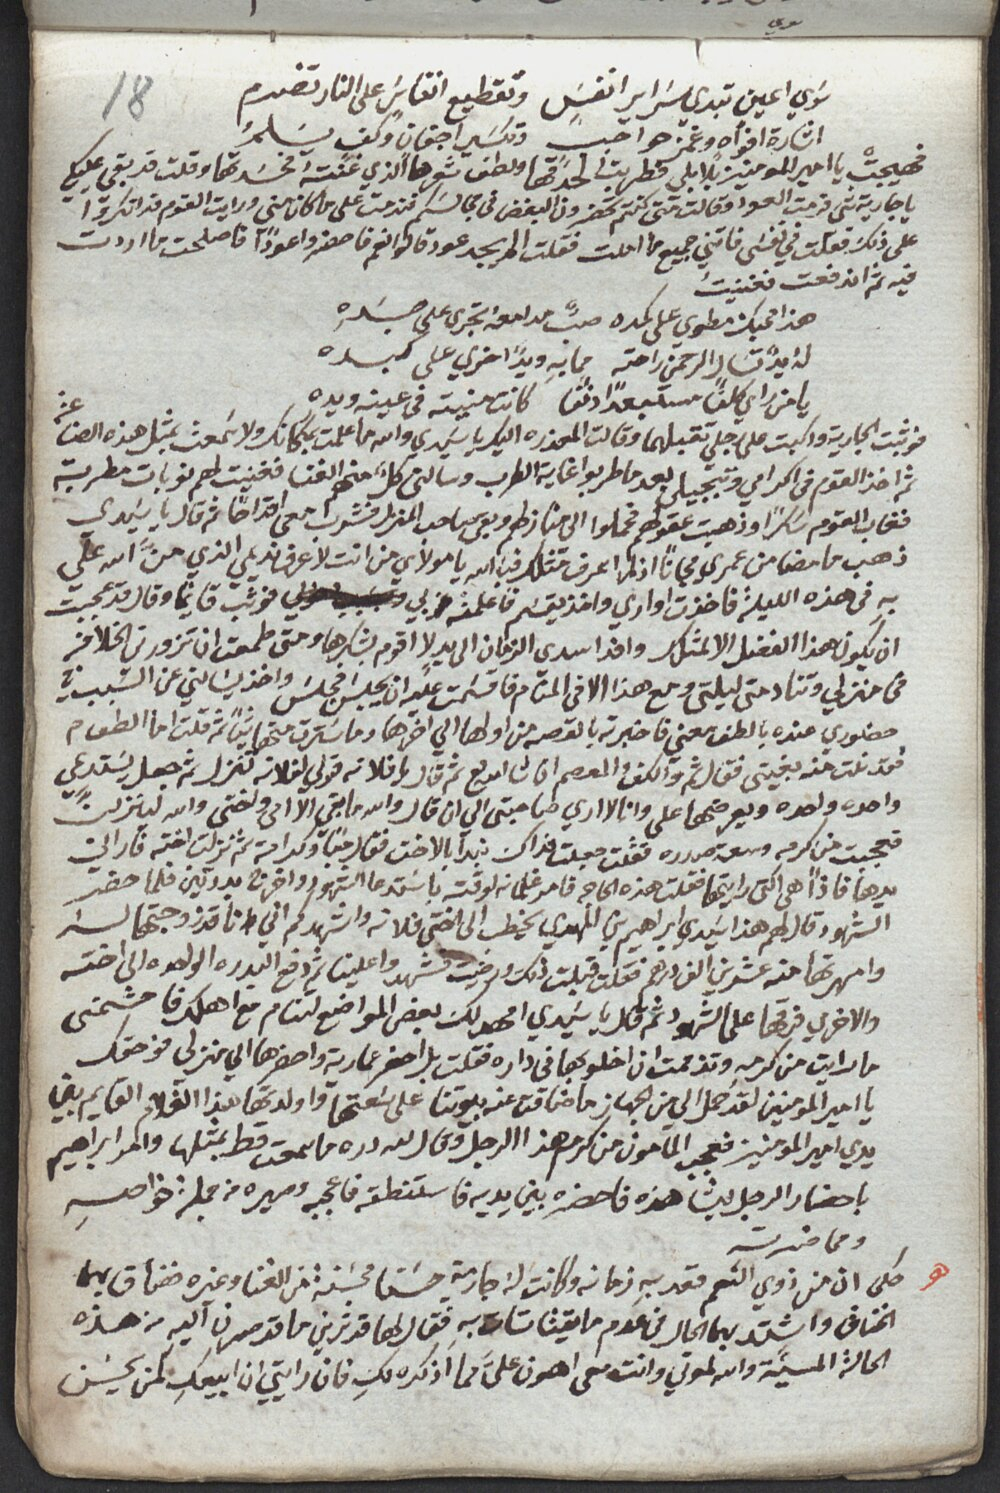 سوي
18
سوي اعين تبدي سراير انفس وتقطيع انفاس على النار تضرم
اشارة افواه وغمز حواجب وتكسير اجفان وكف يسلم
فهيجت يا امير المومنين بلابلي فطربت لحذقها ولطف شعرها الذي غنته فحسدتها وقلت قد بقي عليكي
يا جارية شي فرمت العود وقالت متى كنتم تحضرون البغض في مجالسكم فندمت على ما كان مني ورايت القوم قد انكروا
على ذلك فقلت في نفسي فاتني جميع ما املت فقلت الم يجد عود قالوا نعم فاحضروا عودا فاصلحت ما اردت
فيه ثم اندفعت فغنيت
هذا محبك مطوي على كمده صب مدامعه تجري على جسده
له يد تسال الرحمن راحته مما به ويدا اخري على كبده
يا من راي كلفا مستبعدا دنفا كانت منيته في عينه ويده
فوثبت الجارية واكبت على رجلي تقبلهما وقالت المعذره اليك يا سيدي والله ما علمت بمكانك ولا سمعت بمثل هذه الصناعه
ثم اخذ القوم في اكرامي وتبجيلي بعد ما طربوا غاية الطرب وسالني كل منهم الغنا فغنيت لهم نوبات مطربة
فغاب القوم سكرا وذهبت عقولهم فحملوا الى منازلهم وبقي صاحب المنزل فشرب معي اقداحا ثم قال يا سيدي
ذهب ما مضا من عمري مجانا اذ لم اعرف مثلك فبالله يا مولاي من انت لاعرف نديمي الذي من الله علي
به في هذه الليلة فاخذت اواري واخذ يقسم فاعلمته بي فوثب قايما وقال قد عجبت
ان يكون هذا الفضل الا لمثلك ولقد اسدي الزمان الي يد لا اقوم بشكرها ومتى طمعت ان تزورني الخلافة
في منزلي وتنادمني ليلتي ومع هذا الا في المنام فاقسمت عليه ان يجلس فجلس واخذ يسالني عن السبب في
حضوري عنده بالطف معني فاخبرته بالقصه من اولها الي اخرها وما سترت منها شيا ثم قلت اما الطعام
فقد نلت منه بغيتي فقال ثم والكف والمعصم ان شا الله ثم قال يا فلانه قولي لفلانه تنزل ثم جعل يستدعي
واحده واحده ويعرضها علي وانا لا اري صاحبتي الي ان قال والله ما بقي الا امي واختي والله لينزلن
فعجبت من كرمه وسعة صدره فقلت جعلت فداك نبدا بالاخت فقال حبا وكرامة ثم نزلت اخته فاراني
يدها فاذا هي التي رايتها فقلت هذه الحاجه فامر غلمانه لوقته باستدعا الشهود واخرج بدرتين فلما حضر
الشهود قال لهم هذا سيدي ابراهيم بن المهدي يخطب الي اختي فلانه واشهدكم اني انا قد زوجتها له
وامهرتها عنه عشرين الف درهم فقلت قبلت ذلك ورضيت فشهدوا علينا ثم دفع البدره الواحده الى اخته
والاخري فرقها على الشهود ثم قال يا سيدي امهد لك بعض المواضع لتنام مع اهلك فاحشمني
ما رايت من كرمه وتذممت ان اخلو بها في داره فقلت بل احضر عمارية واحضرها الي منزلي فوحقك
يا امير المومنين لقد حمل الي من الجهاز ما ضاقت عنه بيوتنا على سعتها واولدتها هذا الغلام القايم بين
يدي امير المومنين فعجب المامون من كرم هذا الرجل وقال لله دره ما سمعت قط بمثلها وامر ابراهيم
باحضار الرجل ليشاهده فاحضره بين يديه فاستنطقه فاعجبه وصيره من جملة خواصه
ومحاضرته
حكى ان من ذوي النعم فقد به زمانه وكانت له جارية حسنا محسنة من الغنا وغيره فضاق بهما
الخناق واشتد بهما الحال في عدم ما يقتاتان به فقال لها قد ترين ما قد صرنا اليه من هذه
الحالة المسيئة والله لموتي وانت معي اهون علي مما اذكره لك فان رايتي ان ابيعك لمن يحسن